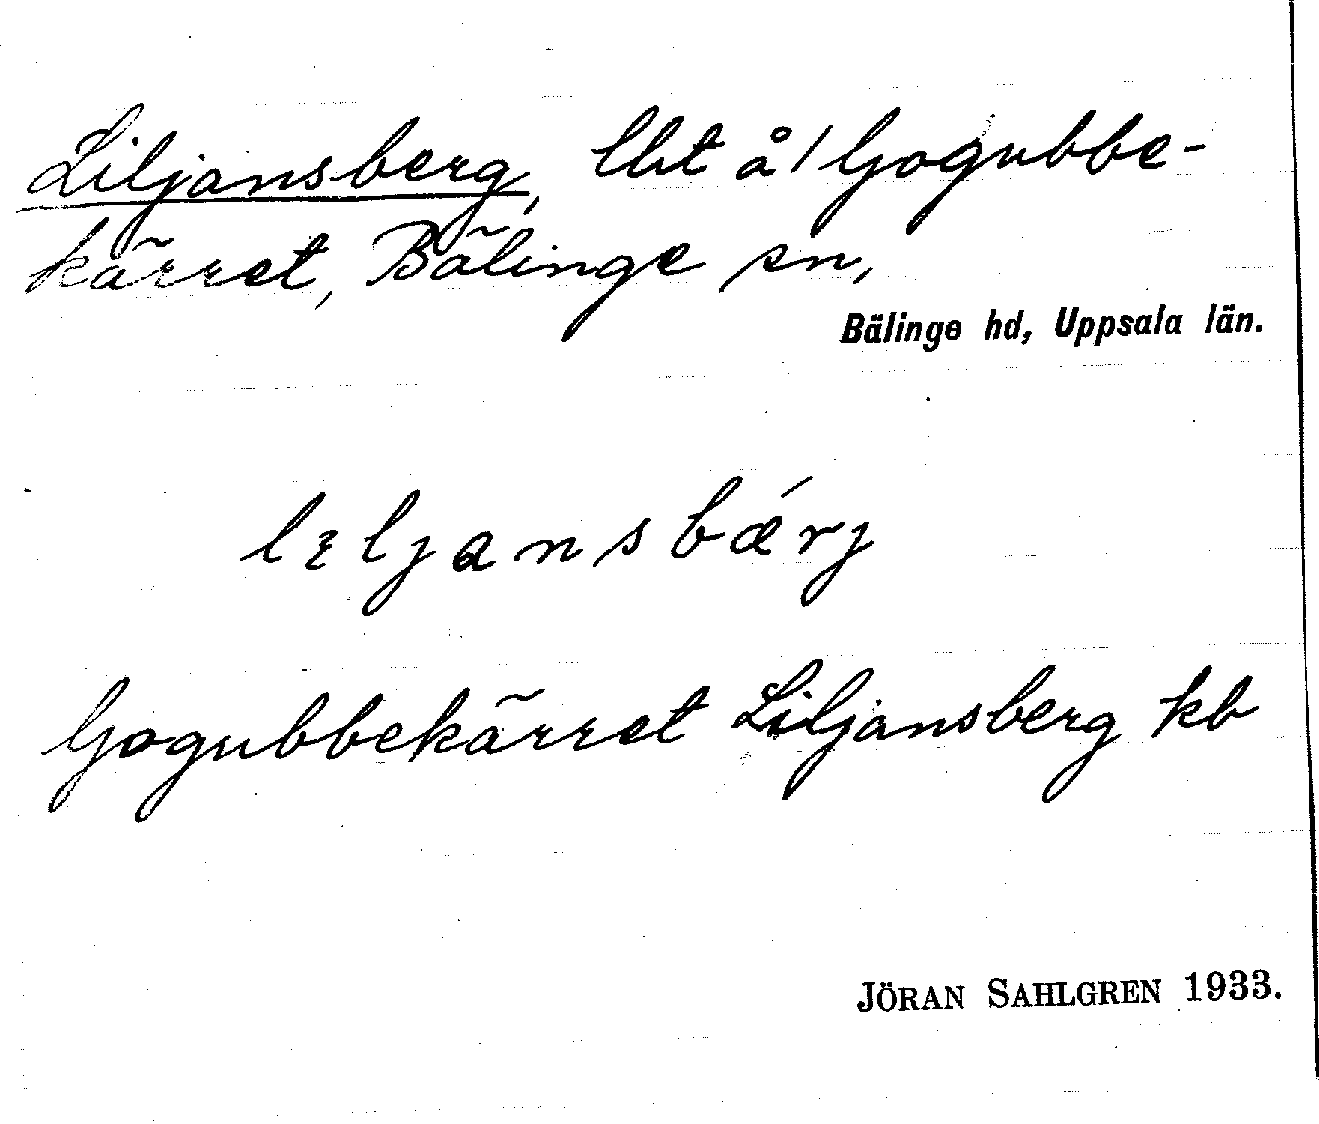 Liljansberg, lht å/Gogubbe-
kärret, Bälinge sn,
Bälinge hd, Uppsala län.
lɩljansbǽrj
Gogubbekärret Liljansberg kb
JÖRAN SAHLGREN 1933.